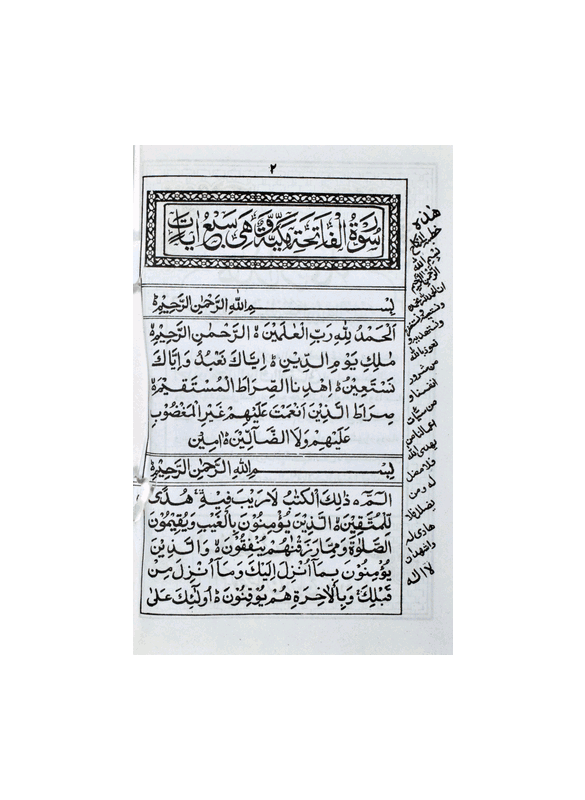 ٢
سورة الفاتحة مكية وهي سبع ايات
بِسْمِ اللهِ الرَّحْمٰنِ الرَّحِيْمِ ۝
اَلْحَمْدُ لِلّٰهِ رَبِّ الْعٰلَمِيْنَ ۝ الرَّحْمٰنِ الرَّحِيْمِ ۝
مٰلِكِ يَوْمِ الدِّيْنِ ۝ اِيَّاكَ نَعْبُدُ وَاِيَّاكَ
نَسْتَعِيْنُ ۝ اِهْدِنَا الصِّرَاطَ الْمُسْتَقِيْمَ ۝
صِرَاطَ الَّذِيْنَ اَنْعَمْتَ عَلَيْهِمْ غَيْرِ الْمَغْضُوْبِ
عَلَيْهِمْ وَلَا الضَّآلِّيْنَ ۝ اٰمِيْن
بِسْمِ اللهِ الرَّحْمٰنِ الرَّحِيْمِ ۝
الٓمّٓ ۝ ذٰلِكَ الْكِتٰبُ لَا رَيْبَ فِيْهِ هُدًى
لِّلْمُتَّقِيْنَ ۝ الَّذِيْنَ يُؤْمِنُوْنَ بِالْغَيْبِ وَيُقِيْمُوْنَ
الصَّلٰوةَ وَمِمَّا رَزَقْنٰهُمْ يُنْفِقُوْنَ ۝ وَالَّذِيْنَ
يُؤْمِنُوْنَ بِمَآ اُنْزِلَ اِلَيْكَ وَمَآ اُنْزِلَ مِنْ
قَبْلِكَ وَبِالْاٰخِرَةِ هُمْ يُوْقِنُوْنَ ۝ اُولٰٓئِكَ عَلٰى
هذه
خطبة النكاح
بسم الله
الرحمن الرحيم
ان الحمد لله نحمده
ونستعينه ونستغفر
نعوذ بالله
من شرور
انفسنا و
من سيئات
اعمالنا من
يهدى الله
فلا مضل
له ومن
يضلل فلا
هادى له
واشهد ان
لا اله